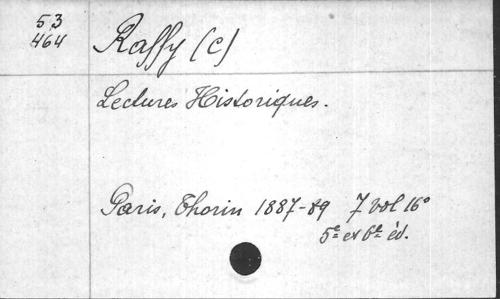 53
464
Raffy (C)
Lectures Historiques.
Paris, Thorin 1887-89 7 vol 16°
5e et 6e éd.